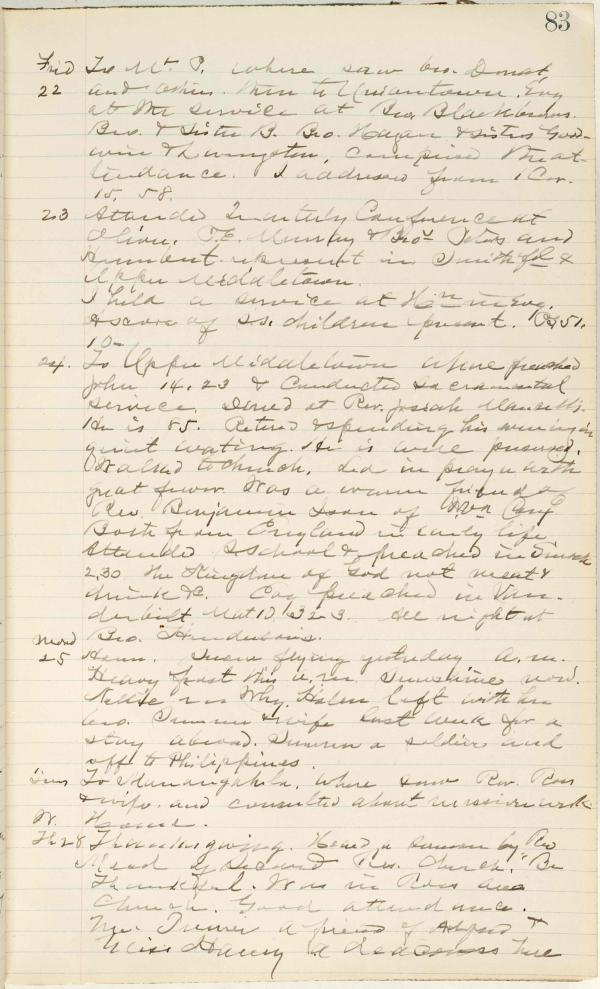 83
Frid To Mt. P. where saw bro.
22 and others. Then to Uniontown. Evg
at the service at Bro. Blackburns.
Bro. & Sister B. Bro. Hagan & sisters Good-
win & Livingston, comprised the at-
tendance. I addressed from 1 Cor.
15, 58.
23 Attended Quarterly Conference at
P.E. Murray & Bro Peters and
represent in Smithfd &
Upper Middletown.
I held a service at in evg.
A score of SS. children present. Ps 51.
10
24. To Upper Middletown where preached
John 14. 23 & Conducted sacramental
service. Dined at Rev. Josiah
He is 85. Retired & spending his evening in
quiet waiting. He is well preserved.
Walked to church, led in prayer with
great fervor. Was a warm friend of
Rev. Benjamin son of
Both from England in early life.
Attended Sschool & preached in
2.30 the Kingdom of God not meat &
drink &c. Evg preached in Van-
derbilt Mat 10/32-3. All night at
Bro. Hendersons.
Mond
25 Home. Snow flying yesterday a.m.
Heavy frost this a.m. Sunshine now.
Nellie Helen left with her
bro. & wife last week for a
stay abroad. a soldier and
off to Philippines.
Tues To Monongahela, where saw Rev. Ross
& wife and consulted about mission work
W. Home.
Th 28 Thanksgiving. Heard a sermon by Rev
Mead of Second Pres. Church, "Be
Thankful. Was in Ross ave
Church. Good attendance.
Mr. Turner a friend of &
Miss a deaconess